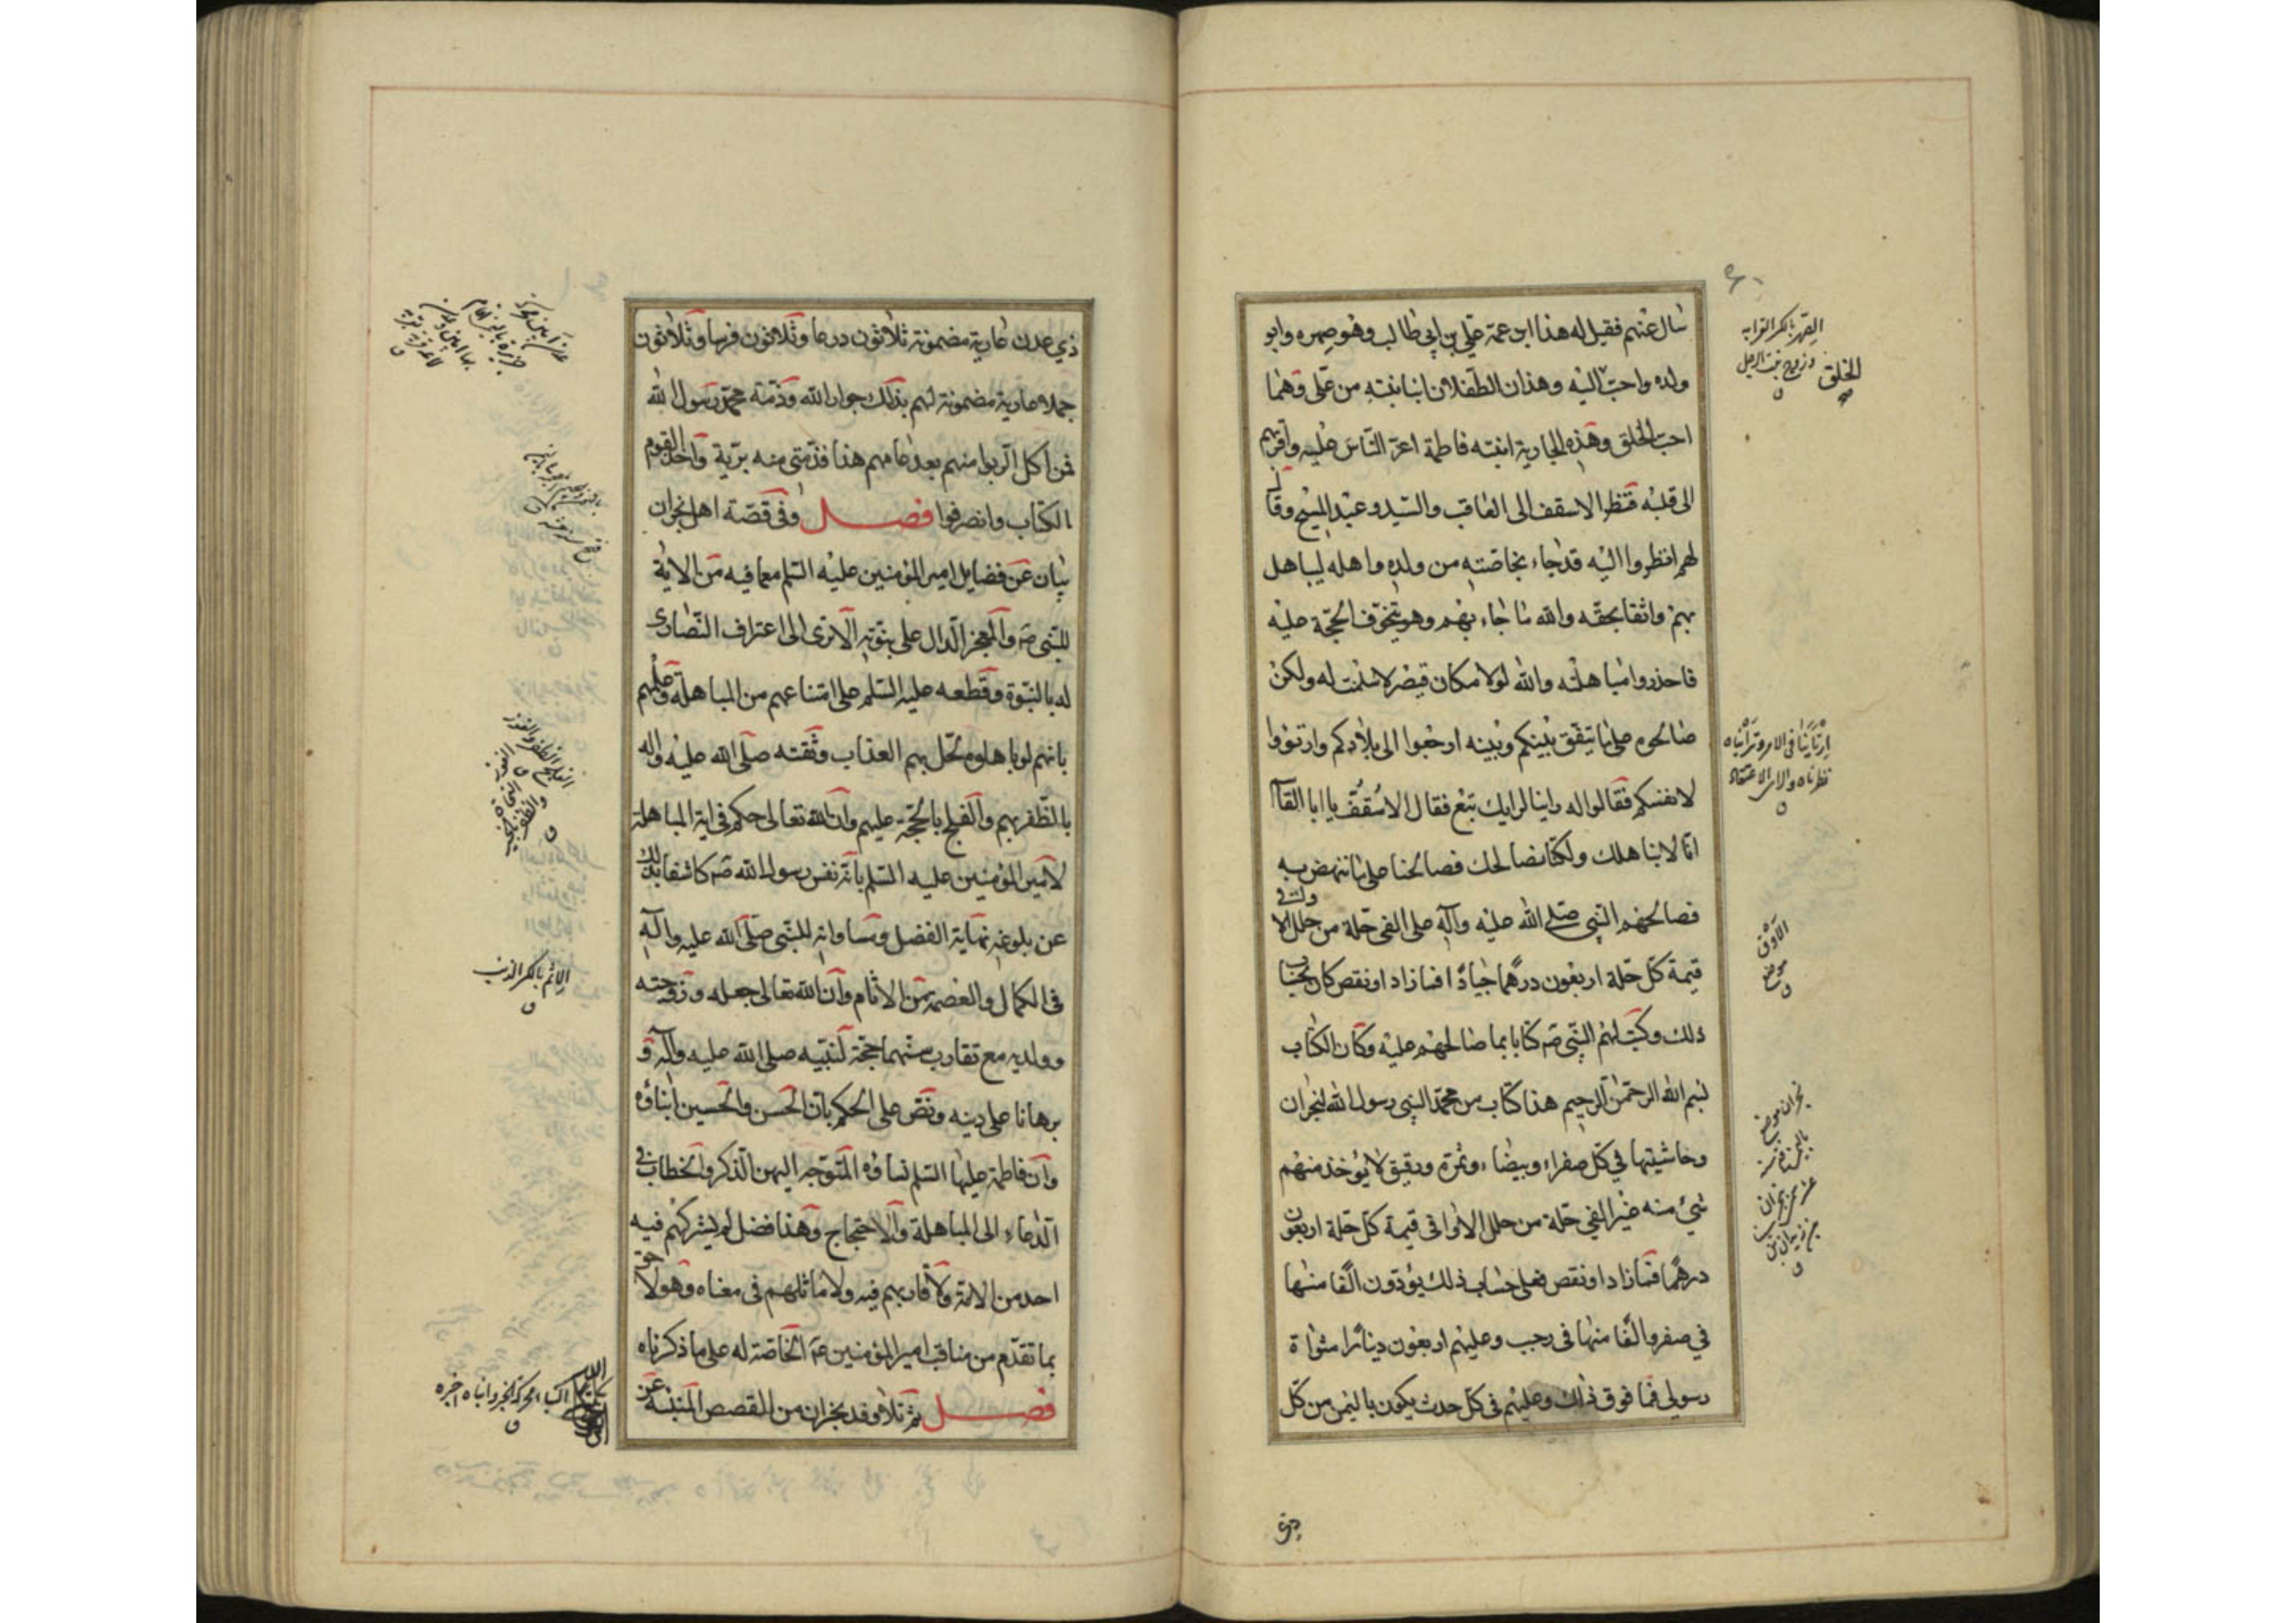 سال عنهم فقيل له هذا ابن عمه علي بن ابي طالب وهو صهره وابو
ولده واحب اليه وهذان الطفلان ابنا بنته من علي وهما
احب الخلق وهذه الجارية ابنته فاطمة اعز الناس عليه واقربهم
الى قلبه فنظر الاسقف الى العاقب والسيد وعبد المسيح وقال
لهم انظروا اليه قد جاء بخاصته من ولده واهله ليباهل
بهم واثقا بحقه والله ما جاء بهم وهو يتخوف الحجة عليه
فاحذروا مباهلته والله لولا مكان قيصر لاسلمت له ولكن
صالحوه على ما يتفق بينكم وبينه ارجعوا الى بلادكم وارتؤوا
لانفسكم فقالوا له راينا لرايك تبع فقال الاسقف يا ابا القاسم
انا لا نباهلك ولكنا نصالحك فصالحنا على ما ننهض به
فصالحهم النبي صلى الله عليه وآله على الفي حلة من حلل الاواقي
قيمة كل حلة اربعون درهما جيادا فما زاد او نقص كان بحساب
ذلك وكتب لهم النبي ص كتابا بما صالحهم عليه وكان الكتاب
بسم الله الرحمن الرحيم هذا كتاب من محمد النبي رسول الله لنجران
وحاشيتها في كل صفراء وبيضاء وثمرة ورقيق لا يؤخذ منهم
شيء منه غير الفي حلة من حلل الاواقي قيمة كل حلة اربعون
درهما فما زاد او نقص فعلى حساب ذلك يؤدون الفا منها
في صفر والفا منها في رجب وعليهم اربعون دينارا مثواة
رسولي فما فوق ذلك وعليهم في كل حدث يكون باليمن من كل
ذي
الصهر بالكسر القرابه
وزوج بنت الرجل
الخلق
ارتأينا في الامر وترأيناه
نظرناه والراى الاعتقاد
الاوق
موضع
نجران موضع
ذي عدن عارية مضمونة ثلاثون درعا وثلاثون فرسا وثلاثون
جملا عارية مضمونة لهم بذلك جوار الله وذمة محمد رسول الله
فمن اكل الربوا منهم بعد عامهم هذا فذمتي منه برية واخذ القوم
الكتاب وانصرفوا فصل وفي قصة اهل نجران
بيان عن فضايل امير المؤمنين عليه السلم مع ما فيه من الاية
للنبي ص والمعجز الدال على نبوته الا ترى الى اعتراف النصارى
له بالنبوة وقطعه عليه السلم على امتناعهم من المباهلة وعلمهم
بانهم لو باهلوه لحل بهم العذاب وثقته صلى الله عليه واله
بالظفر بهم والفلج بالحجة عليهم وان الله تعالى حكم في اية المباهلة
لامير المؤمنين عليه السلم بانه نفس رسول الله ص كاشفا بذلك
عن بلوغه نهاية الفضل ومساواته للنبي صلى الله عليه وآله
في الكمال والعصمة من الاثام وان الله تعالى جعله وزوجته
وولديه مع تقارب سنهما حجة لنبيه صلى الله عليه وآله و
برهانا على دينه ونص على الحكم بان الحسن والحسين ابناؤه
وان فاطمة عليها السلم نساؤه المتوجه اليهن الذكر والخطاب في
الدعاء الى المباهلة والاحتجاج وهذا فضل لم يشركهم فيه
احد من الامة ولا قاربهم فيه ولا ماثلهم في معناه وهو لاحق
بما تقدم من مناقب امير المؤمنين ع الخاصة له على ما ذكرناه
فصل ثم تلا وفد نجران من القصص المنبئة عن
الاثم بالكسر الذنب
النباء محركة الخبر وانباه اخبره